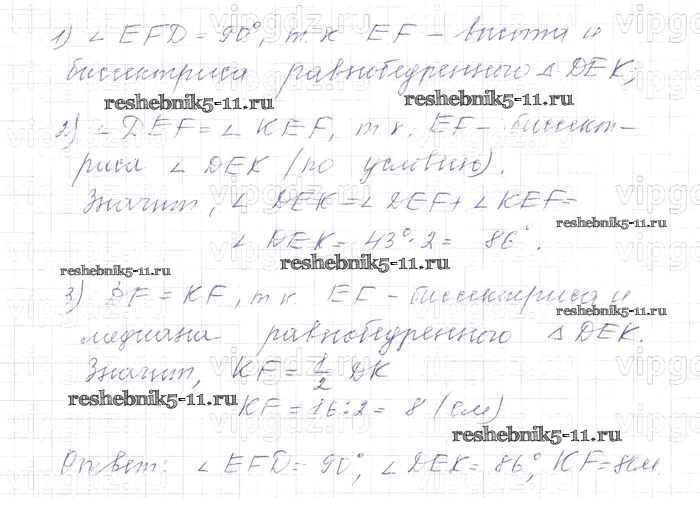 1) ∠ EFD = 90°, т.к EF – высота и
биссектриса равнобедренного △ DEK;
reshebnik5-11.ru
reshebnik5-11.ru
2) ∠ DEF = ∠ KEF, т.к. EF – биссект-
риса ∠ DEK (по условию).
Значит, ∠ DEK = ∠ DEF + ∠ KEF =
reshebnik5-11.ru
∠ DEK = 43° · 2 = 86°.
reshebnik5-11.ru
reshebnik5-11.ru
3) DF = KF, т.к. EF – биссектриса и
reshebnik5-11.ru
медиана равнобедренного △ DEK.
Значит, KF = 1/2 DK
reshebnik5-11.ru
KF = 16 : 2 = 8 (см)
reshebnik5-11.ru
Ответ: ∠ EFD = 90°, ∠ DEK = 86°, KF = 8см